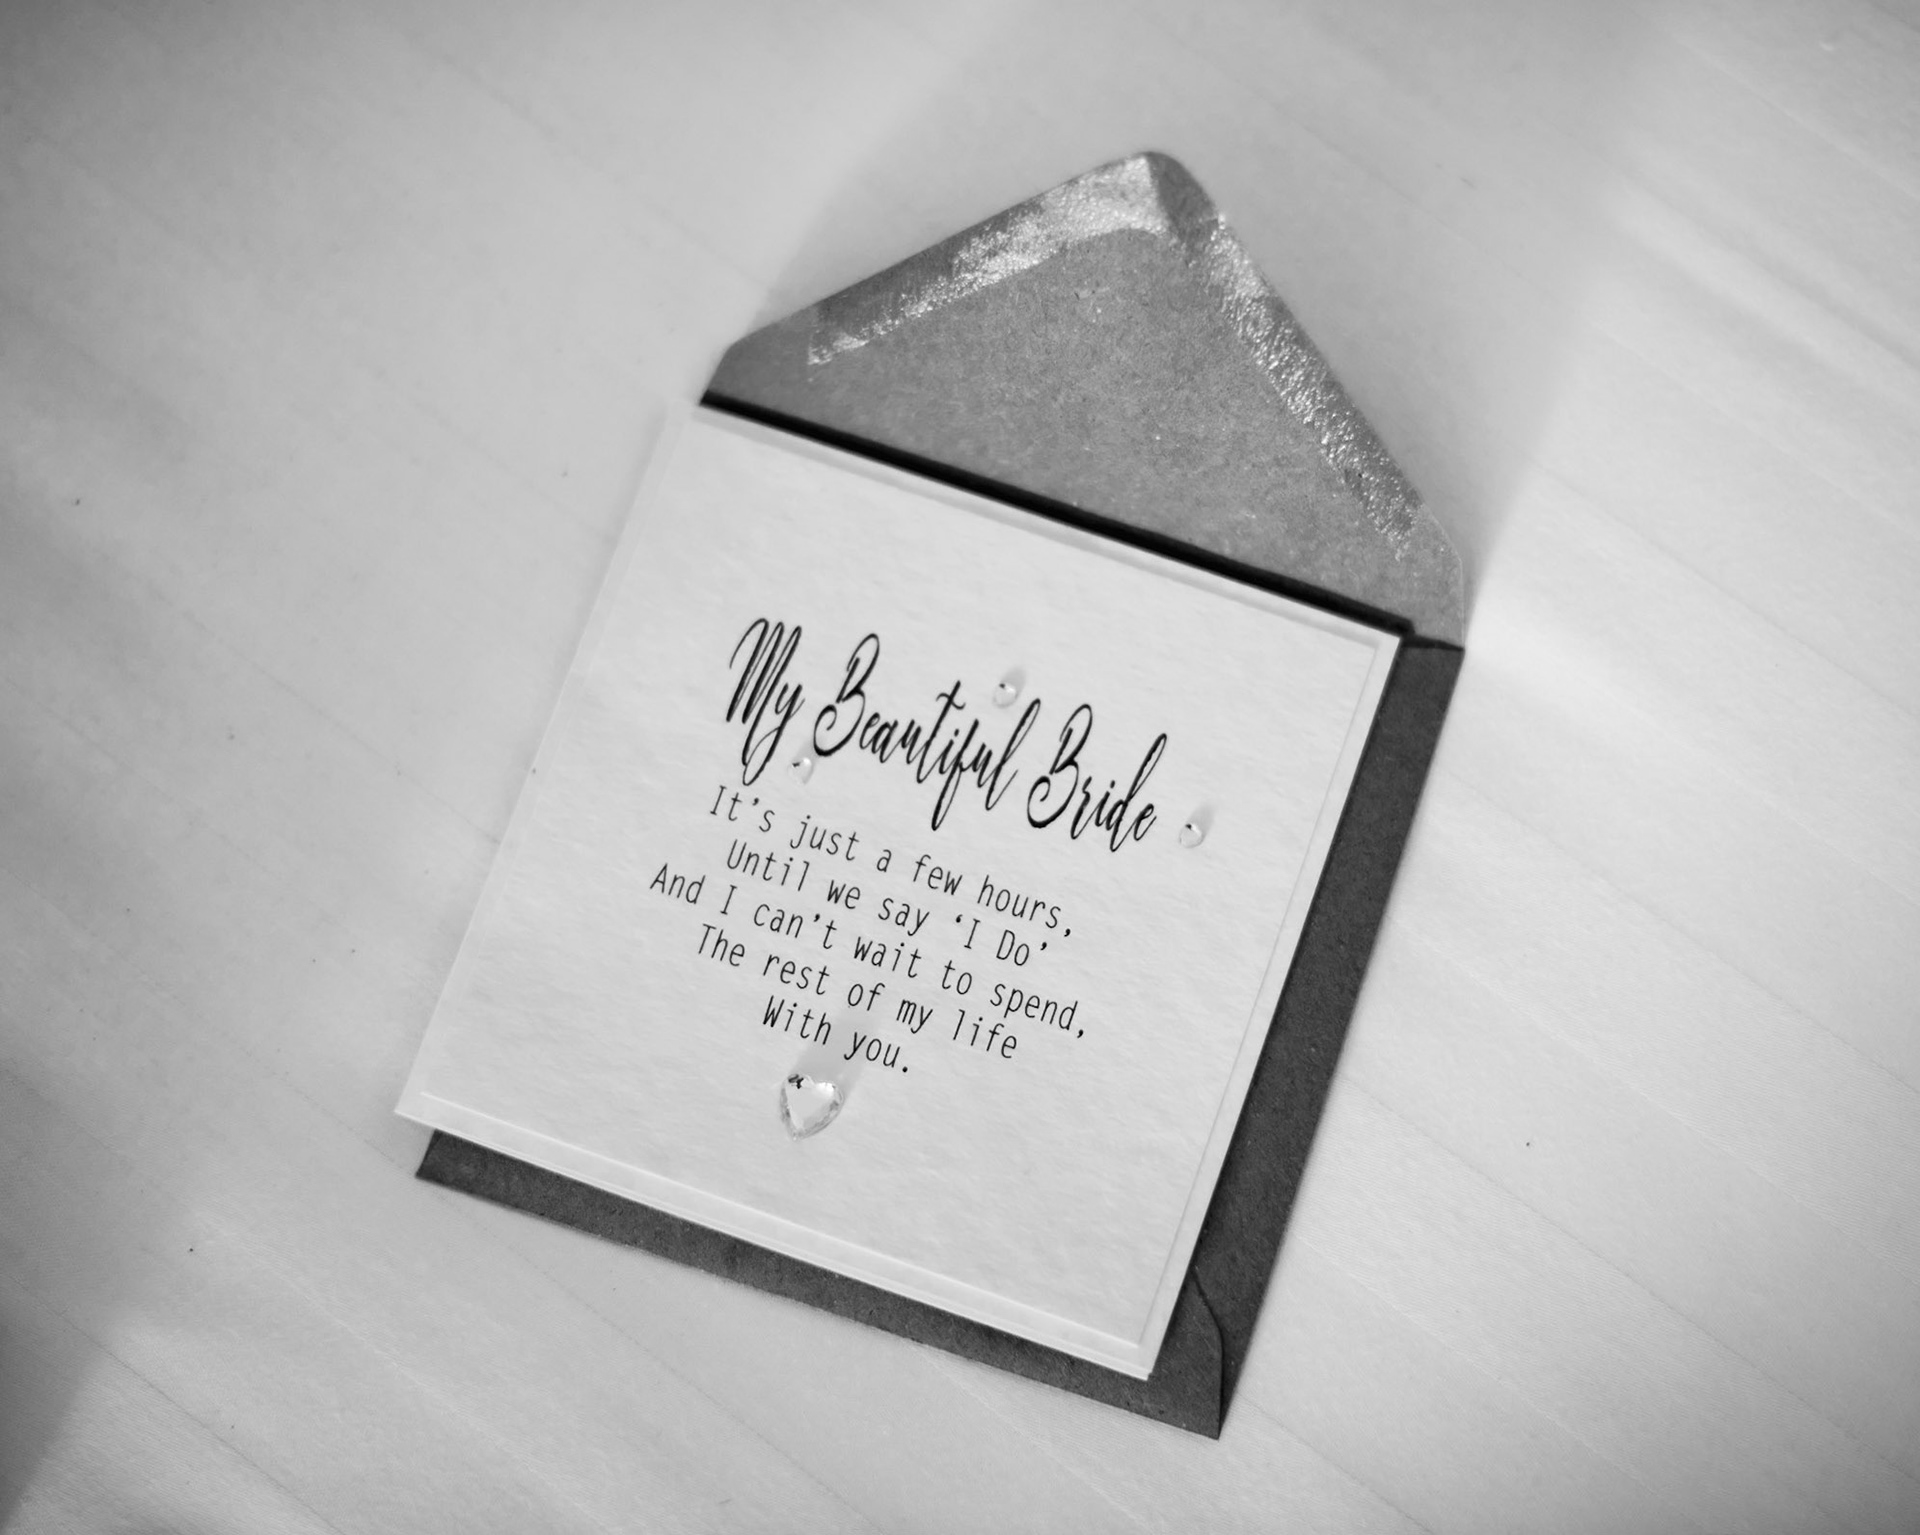 My Beautiful Bride
It’s just a few hours,
Until we say ‘I Do’
And I can’t wait to spend,
The rest of my life
With you.